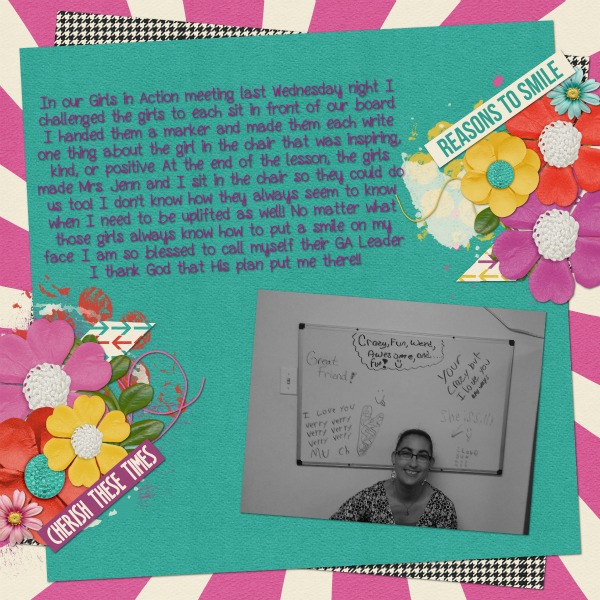 In our Girls in Action meeting last Wednesday night I
challenged the girls to each sit in front of our board
I handed them a marker and made them each write
one thing about the girl in the chair that was inspiring,
kind, or positive At the end of the lesson, the girls
made Mrs. Jenn and I sit in the chair so they could do
us too! I don't know how they always seem to know
when I need to be uplifted as well! No matter what
those girls always know how to put a smile on my
face I am so blessed to call myself their GA Leader
I thank God that His plan put me there!!
REASONS TO SMILE
Crazy, Fun, Weird,
Awesome, and
Fun!
Great
Friend!
Your
Crazy but
I love you
I LOVE YOU
verry verry
verry verry
verry verry
MU Ch
She is
CHERISH THESE TIMES